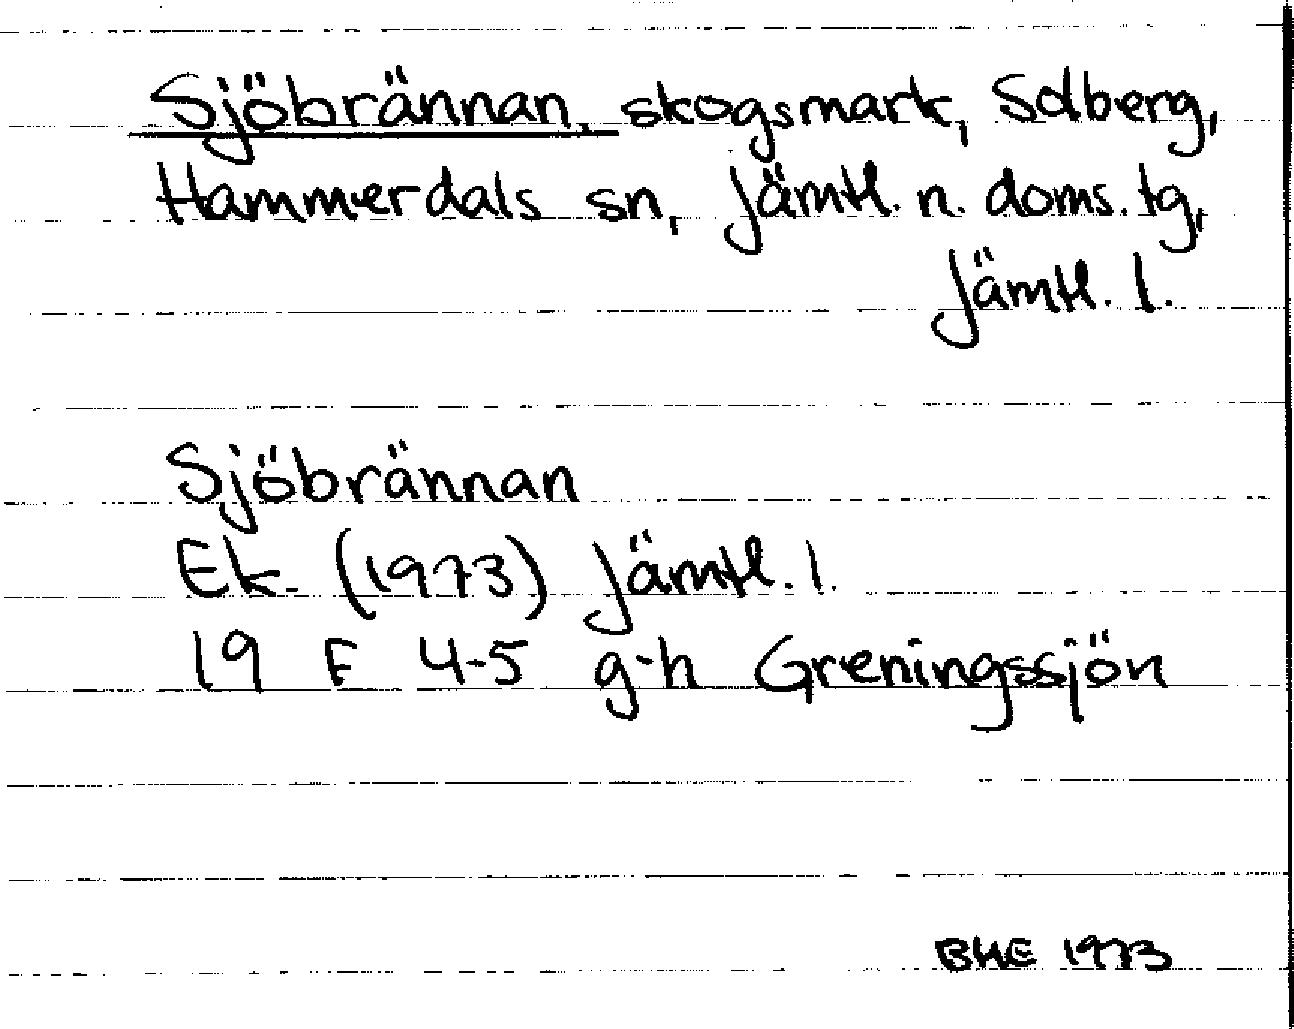 Sjöbrännan, skogsmark, Solberg,
Hammerdals sn, Jämtl. n. doms. tg,
Jämtl. l.
Sjöbrännan
Ek. (1973) Jämtl. l.
19 F 4-5 g-h Greningssjön
BHE 1973